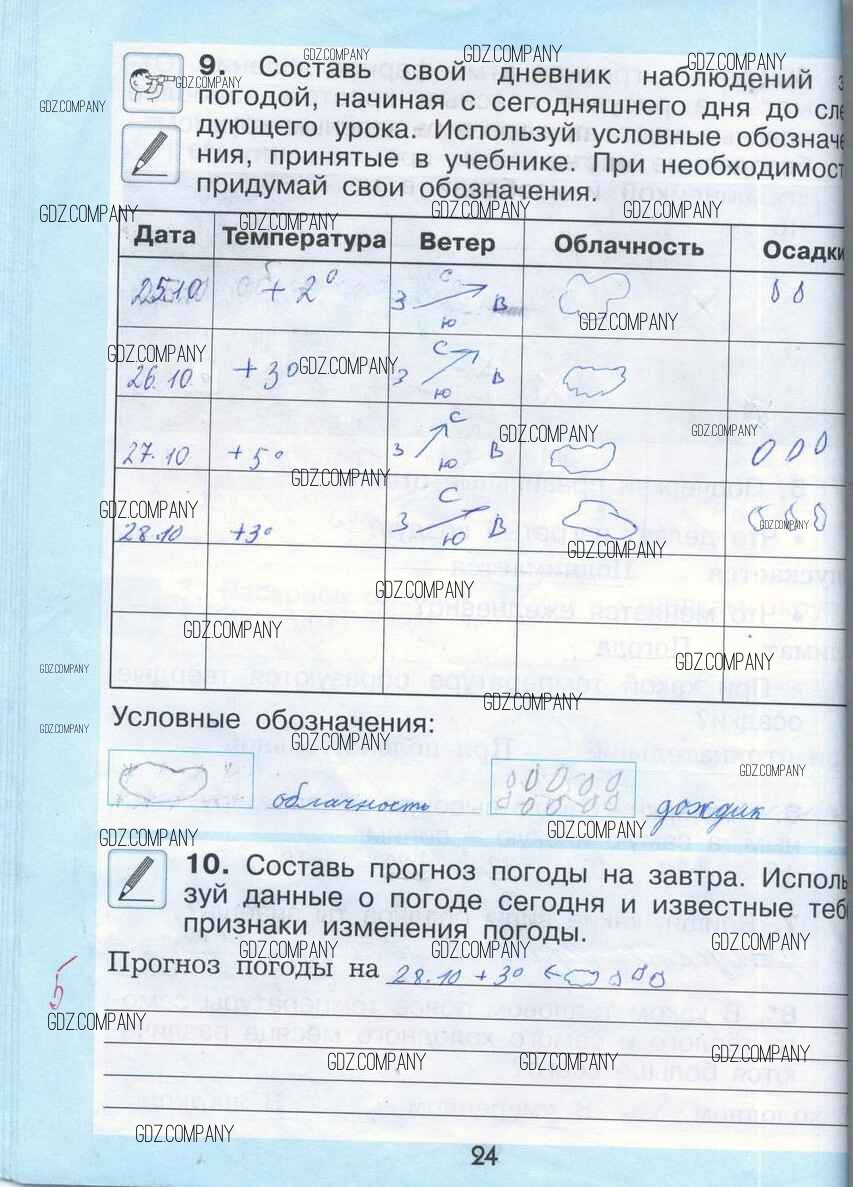 9. Составь свой дневник наблюдений з
погодой, начиная с сегодняшнего дня до сле
дующего урока. Используй условные обозначе
ния, принятые в учебнике. При необходимост
придумай свои обозначения.
Дата Температура Ветер Облачность Осадки
25.10 + 2° С З В Ю
26.10 +3° С З В Ю
27.10 +5° С З В Ю
28.10 +3° С З В Ю
Условные обозначения:
облачность дождик
10. Составь прогноз погоды на завтра. Исполь
зуй данные о погоде сегодня и известные теб
признаки изменения погоды.
Прогноз погоды на 28.10 +3°
5
24
GDZ.COMPANY